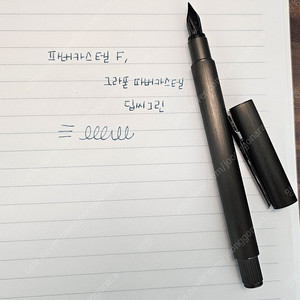 파버카스텔 F,
그라폰 파버카스텔
딥씨그린